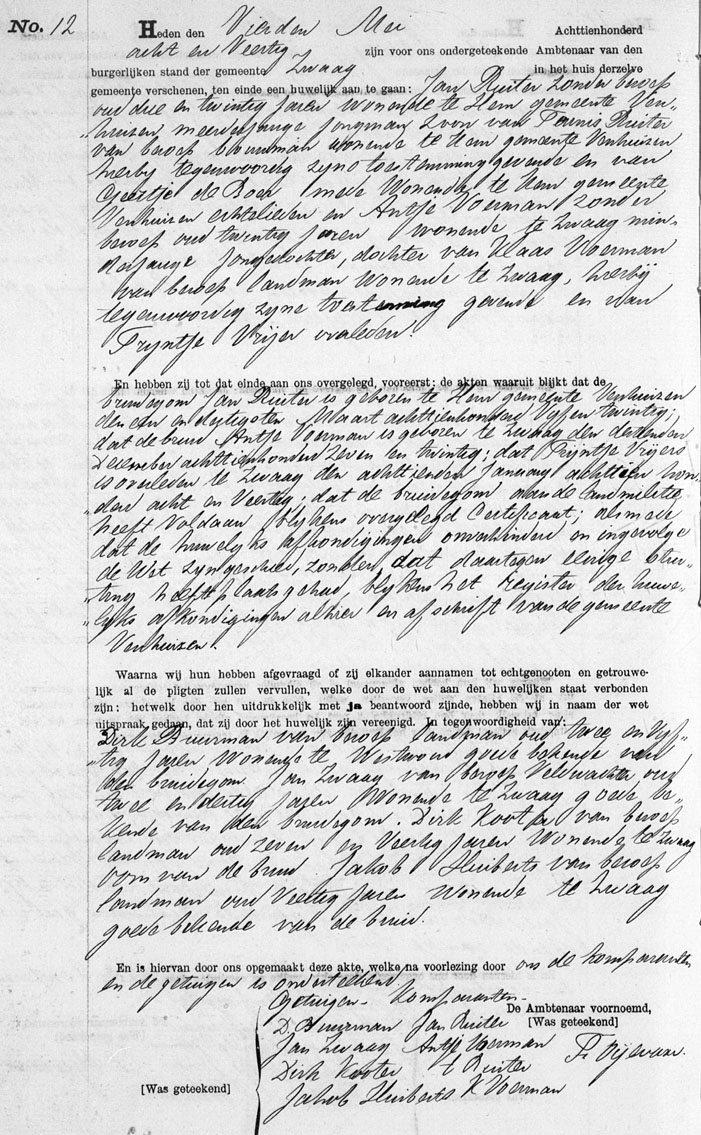 No. 12
Heden den Vierden Mei Achttienhonderd
acht en Veertig zijn voor ons ondergeteekende Ambtenaar van den
burgerlijken stand der gemeente Zwaag in het huis derzelve
gemeente verschenen, ten einde een huwelijk aan te gaan: Jan Ruiter zonder beroep
oud drie en twintig jaren wonende te Hem gemeente Ven-
„huizen, meerderjarige jongman zoon van Teunis Ruiter
van beroep bouwman wonende te Hem gemeente Venhuizen
hierby tegenwoordig zyne toestemming gevende en van
Geertje de Boer mede Wonende te Hem gemeente
Venhuizen echtelieden en Antje Voerman zonder
beroep oud twintig jaren wonende te Zwaag min-
derjarige jongedochter, dochter van Klaas Voerman
van beroep landman wonende te Zwaag, hierbij
tegenwoordig zyne toestemming gevende en van
Tryntje Vrijer overleden.
En hebben zij tot dat einde aan ons overgelegd, vooreerst: de akten waaruit blijkt dat de
bruidegom Jan Ruiter is geboren te Hem gemeente Venhuizen
den een en dertigsten Maart achttienhonderd Vyf en twintig;
dat de bruid Antje Voerman is geboren te Zwaag den dertienden
December achttienhonderd zeven en twintig; dat Trijntje Vrijers
is overleden te Zwaag den achttienden January achttien hon-
„derd acht en Veertig; dat de bruidegom aan de landmilitie
heeft Voldaan blykens overgelegd Certificaat; alsmede
dat de huwelyks afkondigingen onverhinderd en ingevolge
de Wet zyn geschied, zonder dat daartegen eenige stui-
„ting heeft plaats gehad, blykens het register der huwe-
„lyks afkondigingen alhier en afschrift van de gemeente
Venhuizen.
Waarna wij hun hebben afgevraagd of zij elkander aannamen tot echtgenooten en getrouwe-
lijk al de pligten zullen vervullen, welke door de wet aan den huwelijken staat verbonden
zijn: hetwelk door hen uitdrukkelijk met ja beantwoord zijnde, hebben wij in naam der wet
uitspraak gedaan, dat zij door het huwelijk zijn vereenigd. In tegenwoordigheid van:
Dirk Buurman van beroep landman oud twee en Vyf-
„tig jaren Wonende te Westwoud goede bekende van
den bruidegom Jan Zwaag van beroep Veldwachter, oud
twee en dertig jaren Wonende te Zwaag goede be-
kende van den bruidegom. Dirk Kooter van beroep
landman oud zeven en Veertig jaren Wonende te Zwaag
oom van de bruid. Jakob Huiberts van beroep
landman oud Veertig jaren Wonende te Zwaag
goede bekende van de bruid.
En is hiervan door ons opgemaakt deze akte, welke na voorlezing door ons de komparanten
en de getuigen is onderteekend
Getuigen - Komparanten -
De Ambtenaar voornoemd,
D. Buurman Jan Ruiter [Was geteekend]
Jan Zwaag Antje Voerman
Dirk Kooter t Ruiter
[Was geteekend] Jakob Huiberts K Voerman